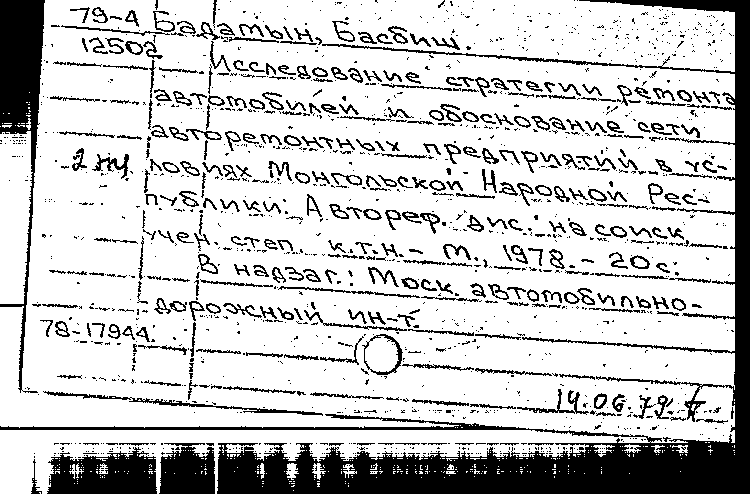 79-4 Бадамын, Басбиш.
12502
Исследование стратегии ремонта
автомобилей и обоснование сети
авторемонтных предприятий в ус-
ловиях Монгольской Народной Рес-
публики: Автореф. дис. на соиск.
учен. степ. к.т.н. - М., 1978. - 20 с.
В надзаг.: Моск. автомобильно-
дорожный ин-т.
78-17944.
14.06.79.